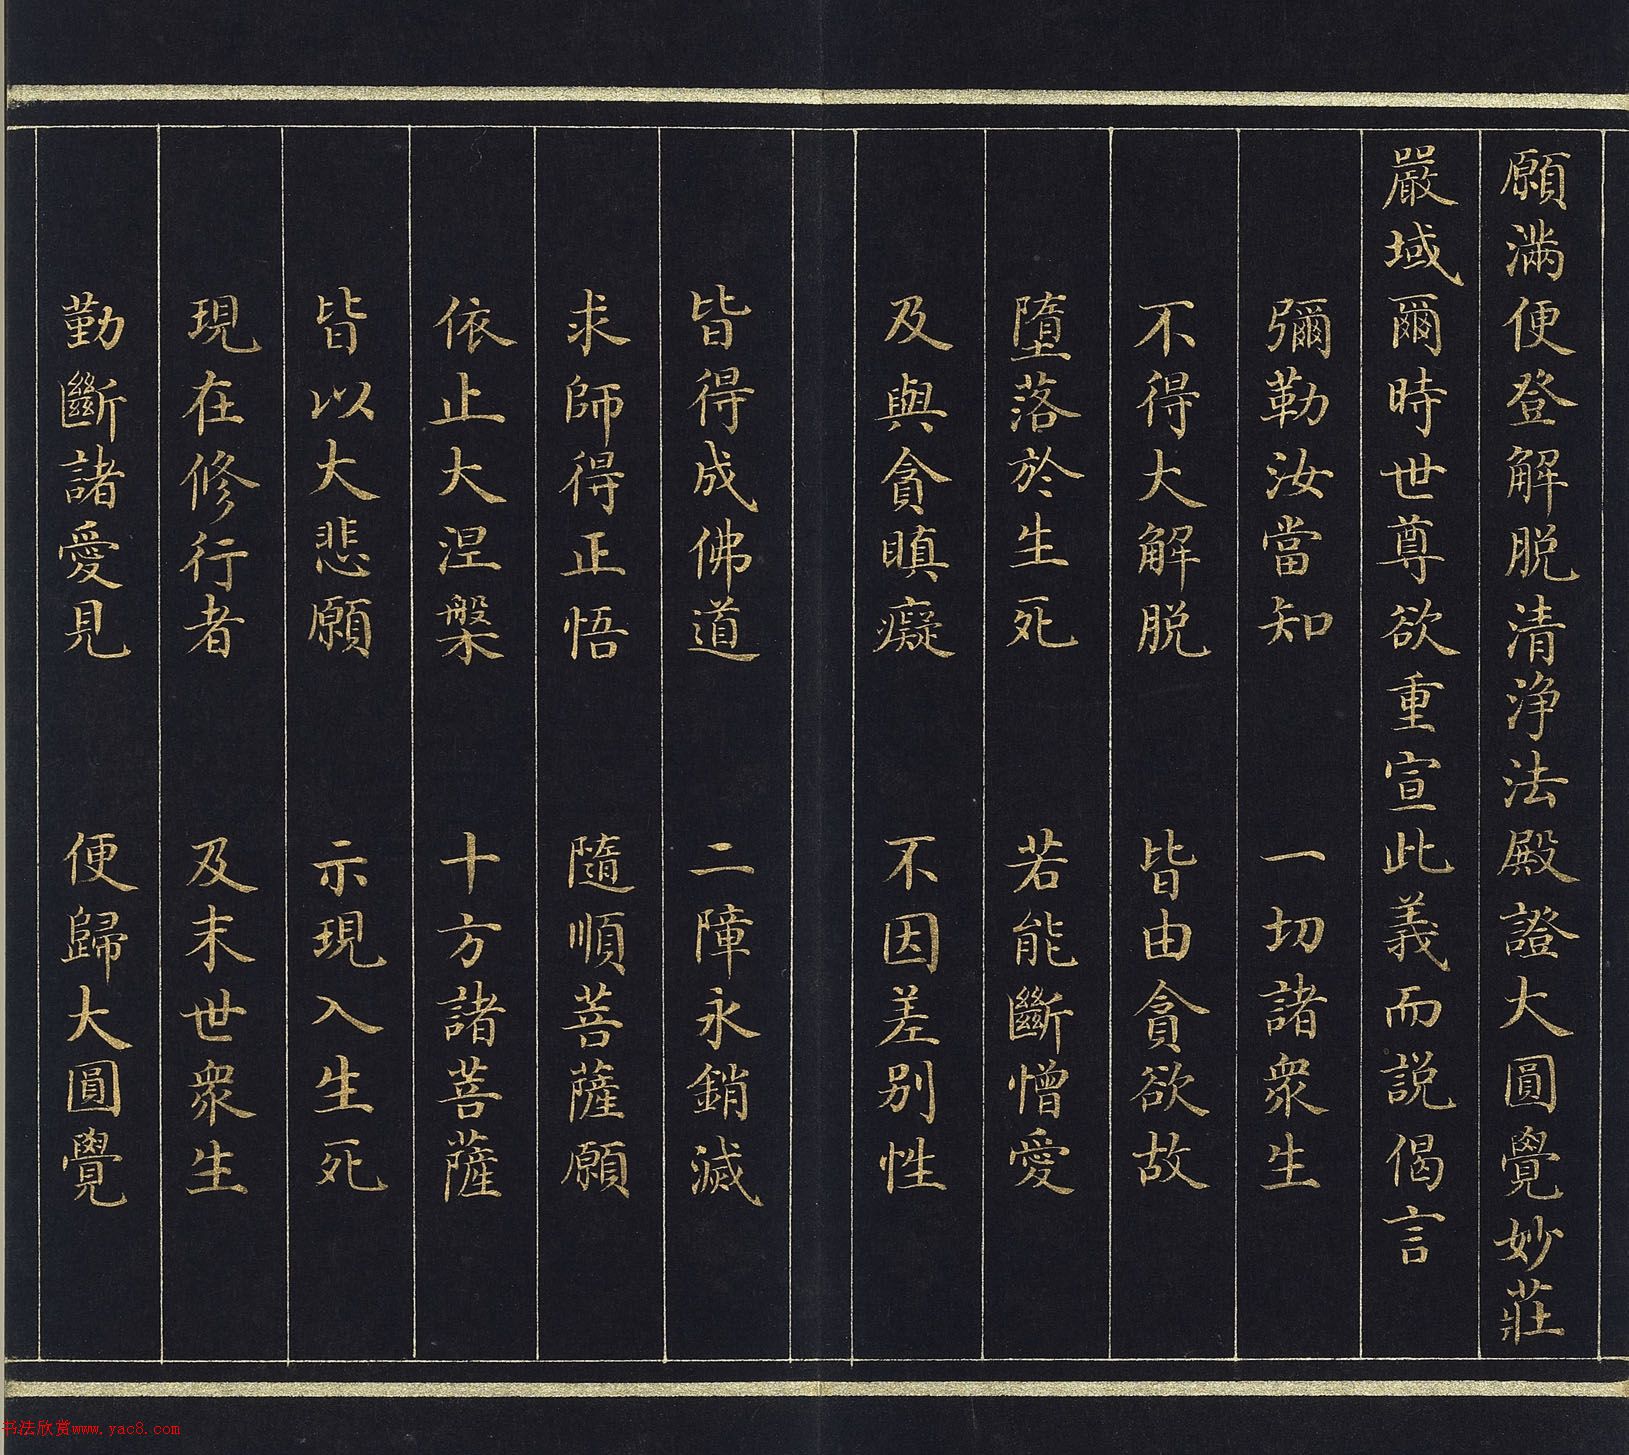 願滿便登解脱清淨法殿證大圓覺妙莊
嚴域爾時世尊欲重宣此義而説偈言
彌勒汝當知 一切諸衆生
不得大解脱 皆由貪欲故
墮落於生死 若能斷憎愛
及與貪瞋癡 不因差别性
皆得成佛道 二障永銷滅
求師得正悟 隨順菩薩願
依止大涅槃 十方諸菩薩
皆以大悲願 示現入生死
現在修行者 及末世衆生
勤斷諸愛見 便歸大圓覺
书法欣赏www.yac8.com